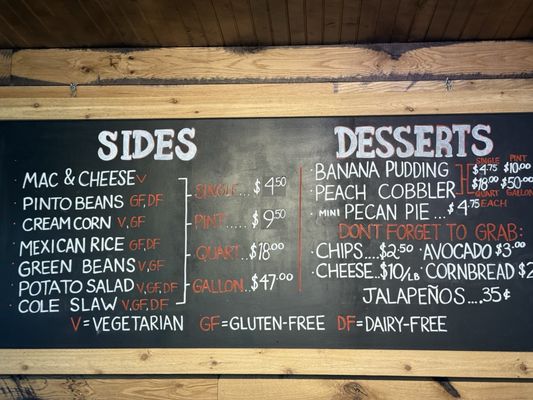 SIDES
MAC & CHEESE V
PINTO BEANS GF,DF
CREAM CORN V, GF
MEXICAN RICE GF,DF
GREEN BEANS V,GF
POTATO SALAD V,GF,DF
COLE SLAW V,GF,DF
SINGLE... $4.50
PINT..... $9.50
QUART... $18.00
GALLON.. $47.00
DESSERTS
BANANA PUDDING
PEACH COBBLER
SINGLE PINT
$4.75 $10.00
$18.00 $50.00
QUART GALLON
MINI PECAN PIE... $4.75 EACH
DON'T FORGET TO GRAB:
CHIPS....$2.50 · AVOCADO $3.00
CHEESE..$10/LB · CORNBREAD $2
JALAPEÑOS....35¢
V = VEGETARIAN GF=GLUTEN-FREE DF=DAIRY-FREE